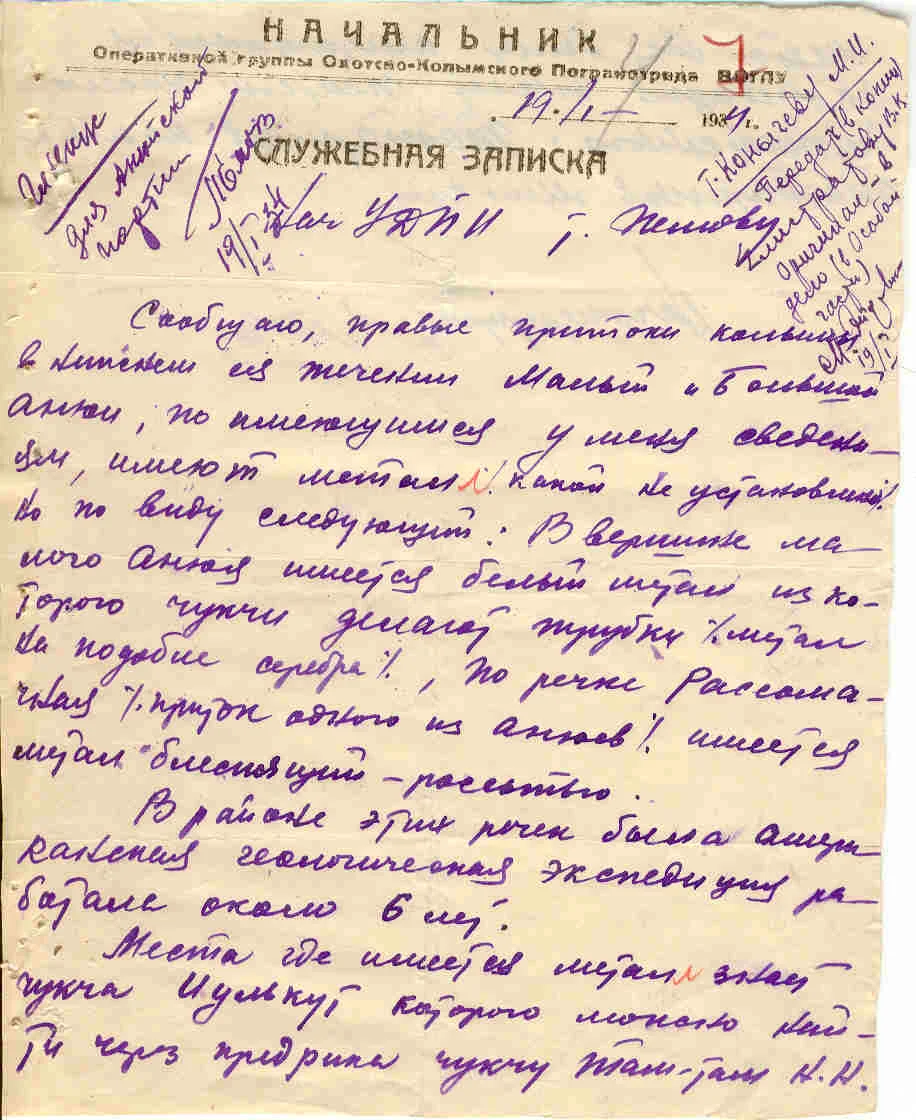 НАЧАЛЬНИК
Оперативной группы Охотско-Колымского Погранотряда ВОГПУ
7
19/I 1934 г.
СЛУЖЕБНАЯ ЗАПИСКА
для Анюйской
партии
19/I 34
т. Конычеву М.И.
Передать в копии
Оригинал - в
дело (в Особой
части)
19/I
Нач УДПИ т.
Сообщаю, правые притоки колымы
в нижнем ея течении Малый и Большой
Анюи, по имеющимся у меня сведени-
ям, имеют металл. какой не установлено
но по виду следующий: В вершине ма-
лого Анюя имеется белый метал из ко-
торого чукчи делают трубки /метал
на подобие серебра/, по речке Россома-
шная /приток одного из анюев/ имеется
метал блестящий - россыпью.
В районе этих речек была амери
канская геологическая экспедиция ра-
ботала около 6 лет.
Места где имеется металл знает
чукча которого можно най-
ти через предрика чукчу Н.Н.